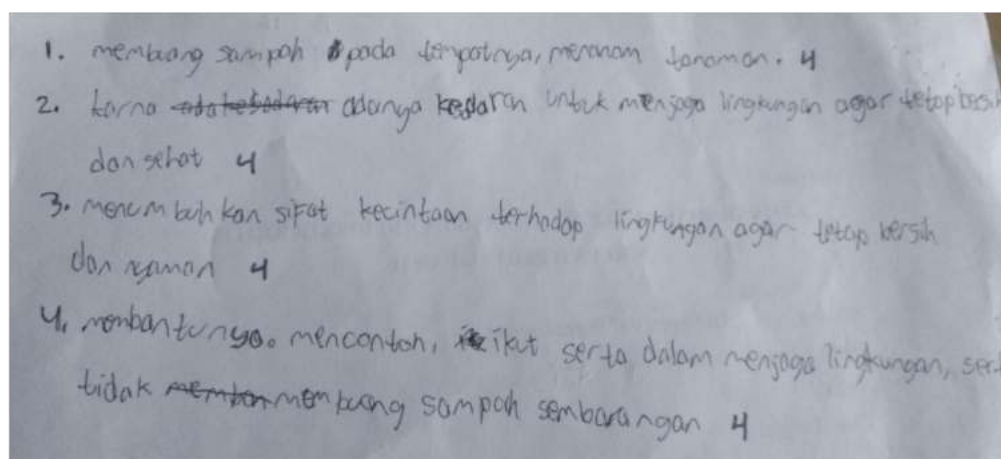 1. membuang sampah pada tempatnya, menanam tanaman. 4
2. karna adanya kedaran untuk menjaga lingkungan agar tetap bersih
dan sehat 4
3. menumbuhkan sifat kecintaan terhadap lingkungan agar tetap bersih
dan nyaman 4
4. membantunya. mencontoh, ikut serta dalam menjaga lingkungan, ser
tidak membuang sampah sembarangan 4